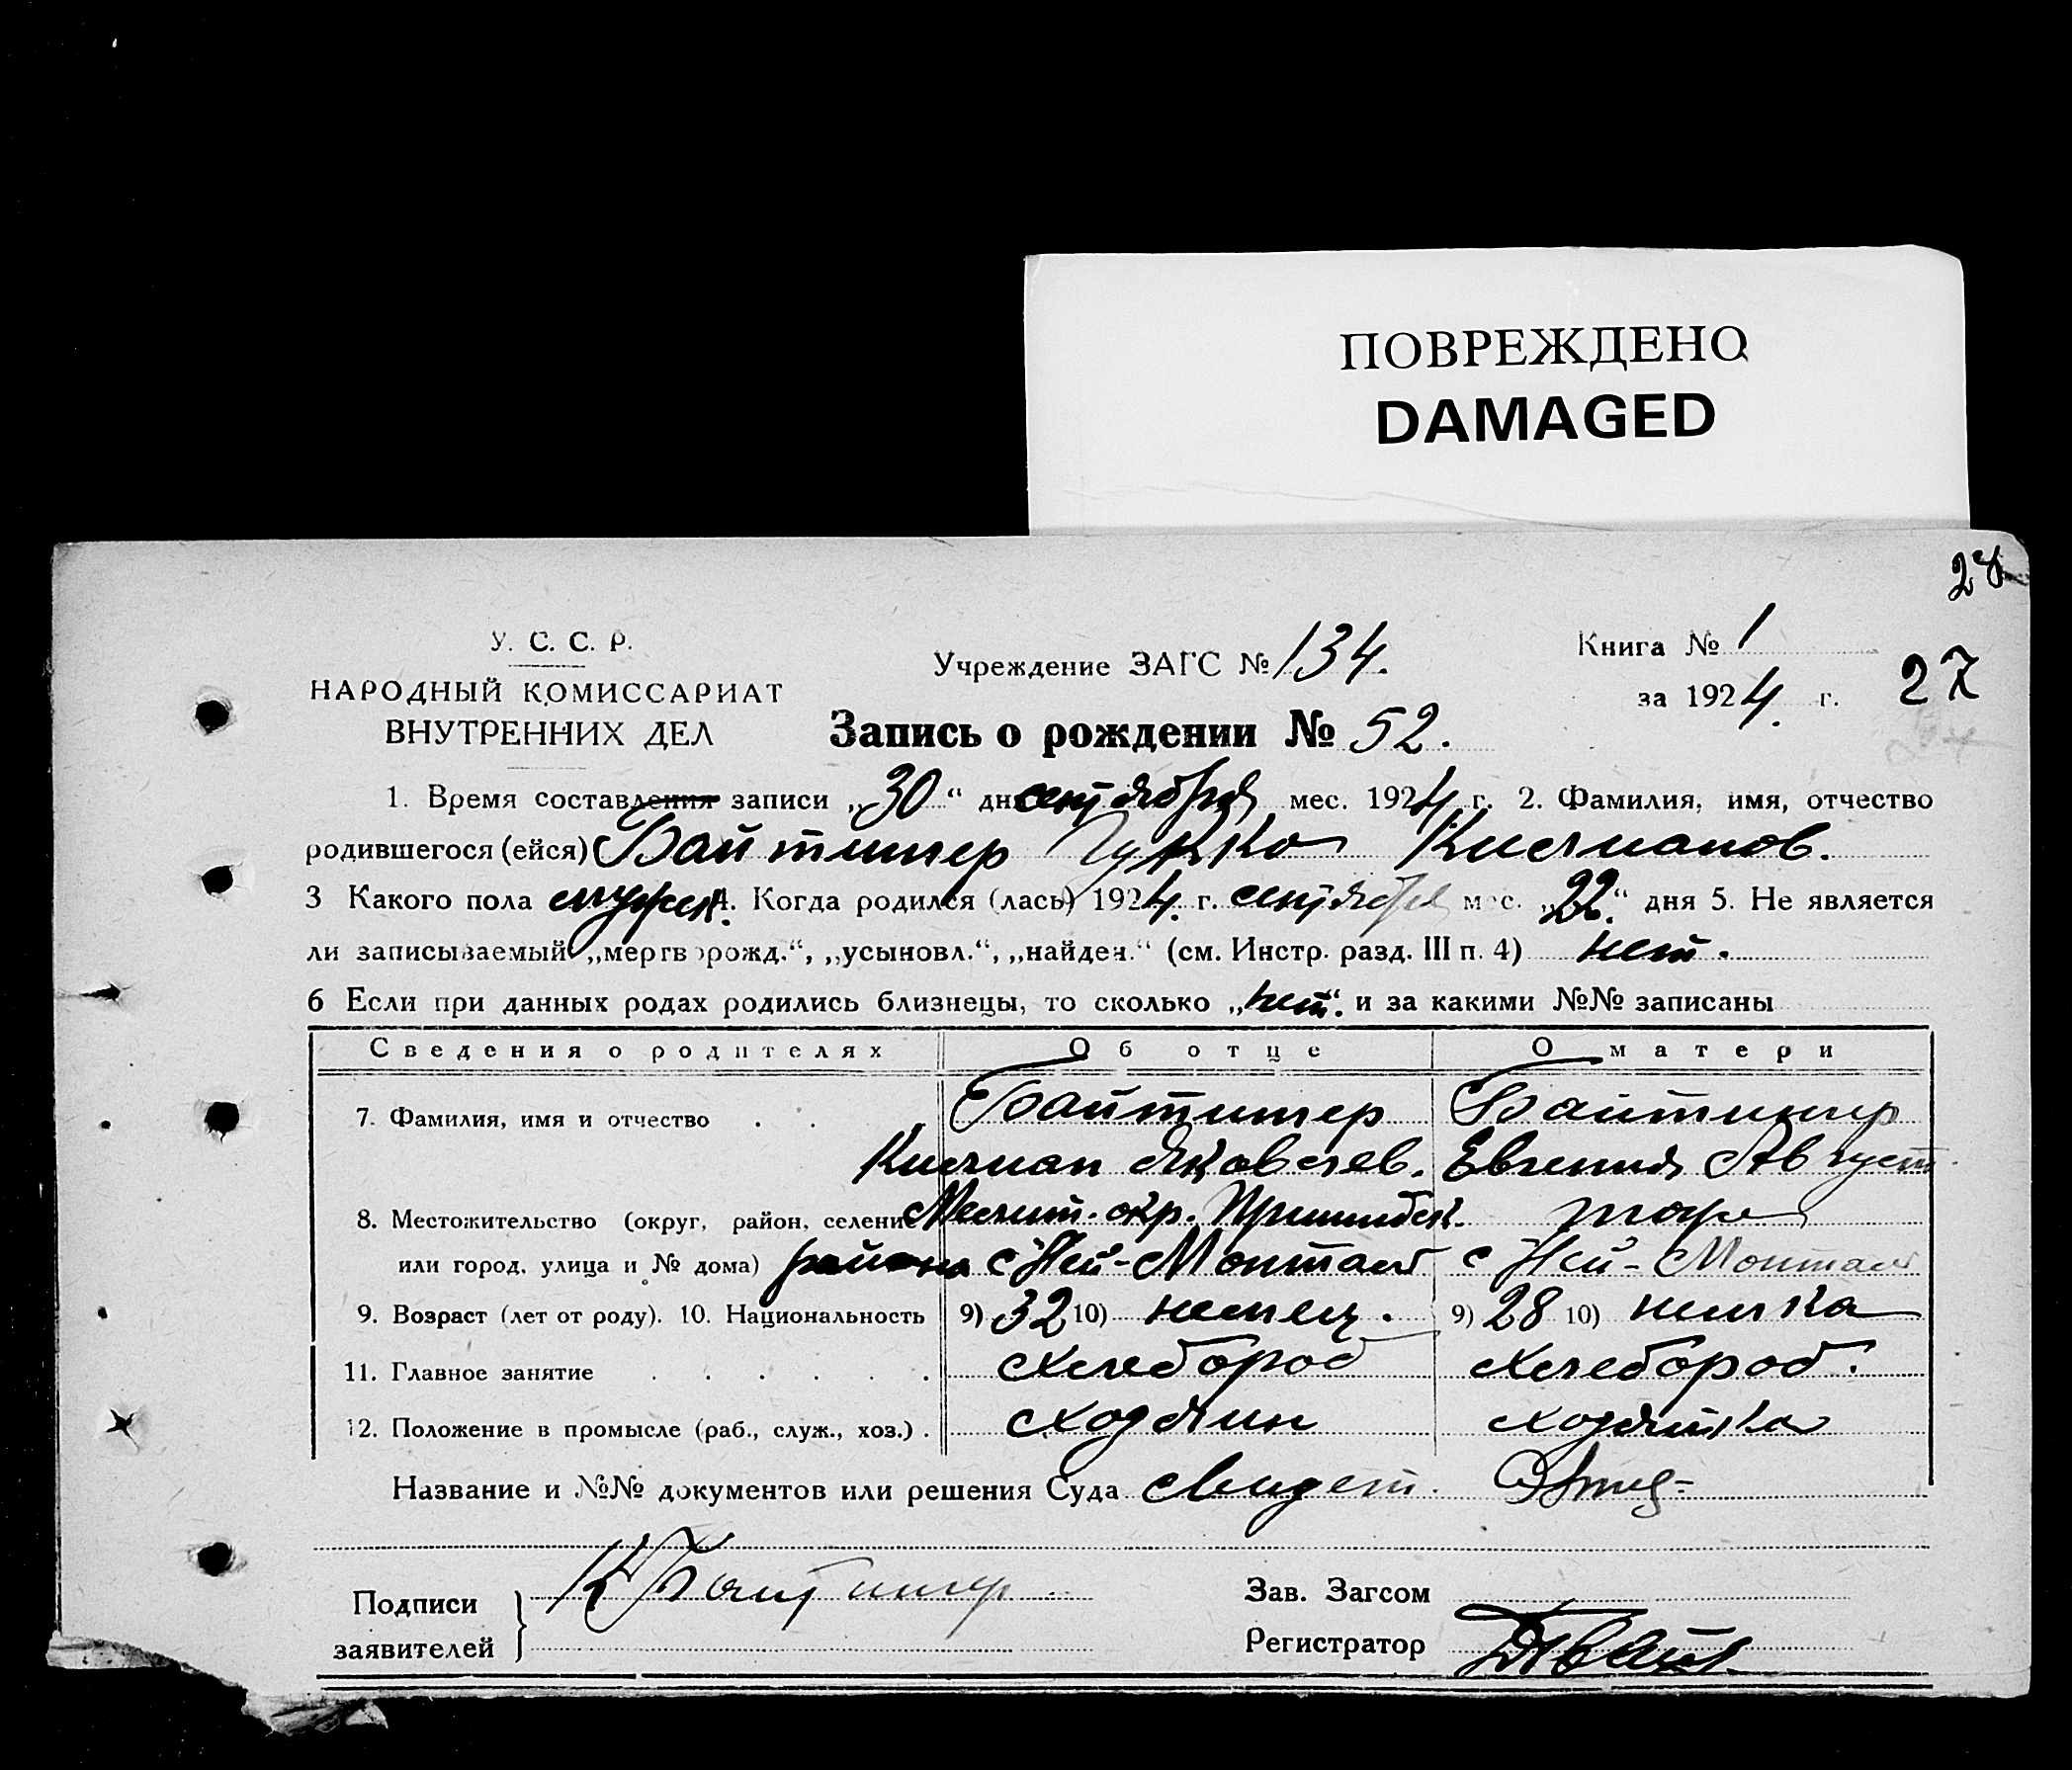 ПОВРЕЖДЕНО
DAMAGED
28
У. С. С. Р.
НАРОДНЫЙ КОМИССАРИАТ
ВНУТРЕННИХ ДЕЛ
Учреждение ЗАГС № 134.
Книга № 1
за 1924 г.
27
Запись о рождении № 52.
1. Время составления записи „30“ дня сентября мес. 1924 г. 2. Фамилия, имя, отчество
родившегося (ейся) Байтингер Кислианов.
3 Какого пола мужск. 4. Когда родился (лась) 1924 г. сентября мес. „22“ дня 5. Не является
ли записываемый „мертворожд.“, „усыновл.“, „найден.“ (см. Инстр. разд. III п. 4) нет.
6 Если при данных родах родились близнецы, то сколько „нет“ и за какими №№ записаны
Сведения о родителях Об отце О матери
7. Фамилия, имя и отчество . . . Байтингер Байтингер
Кислиан Яковлев. Евгения Август
8. Местожительство (округ, район, селение Мелит. окр. Пришибск. тоже
или город, улица и № дома) района с Ней-Монталь с Ней-Монталь
9. Возраст (лет от роду). 10. Национальность 9) 32 10) немец. 9) 28 10) немка
11. Главное занятие . . . . . . Хлебороб Хлебороб.
12. Положение в промысле (раб., служ., хоз.) . Хозяин Хозяйка
Название и №№ документов или решения Суда
Подписи
заявителей
К Байтингер
Зав. Загсом
Регистратор